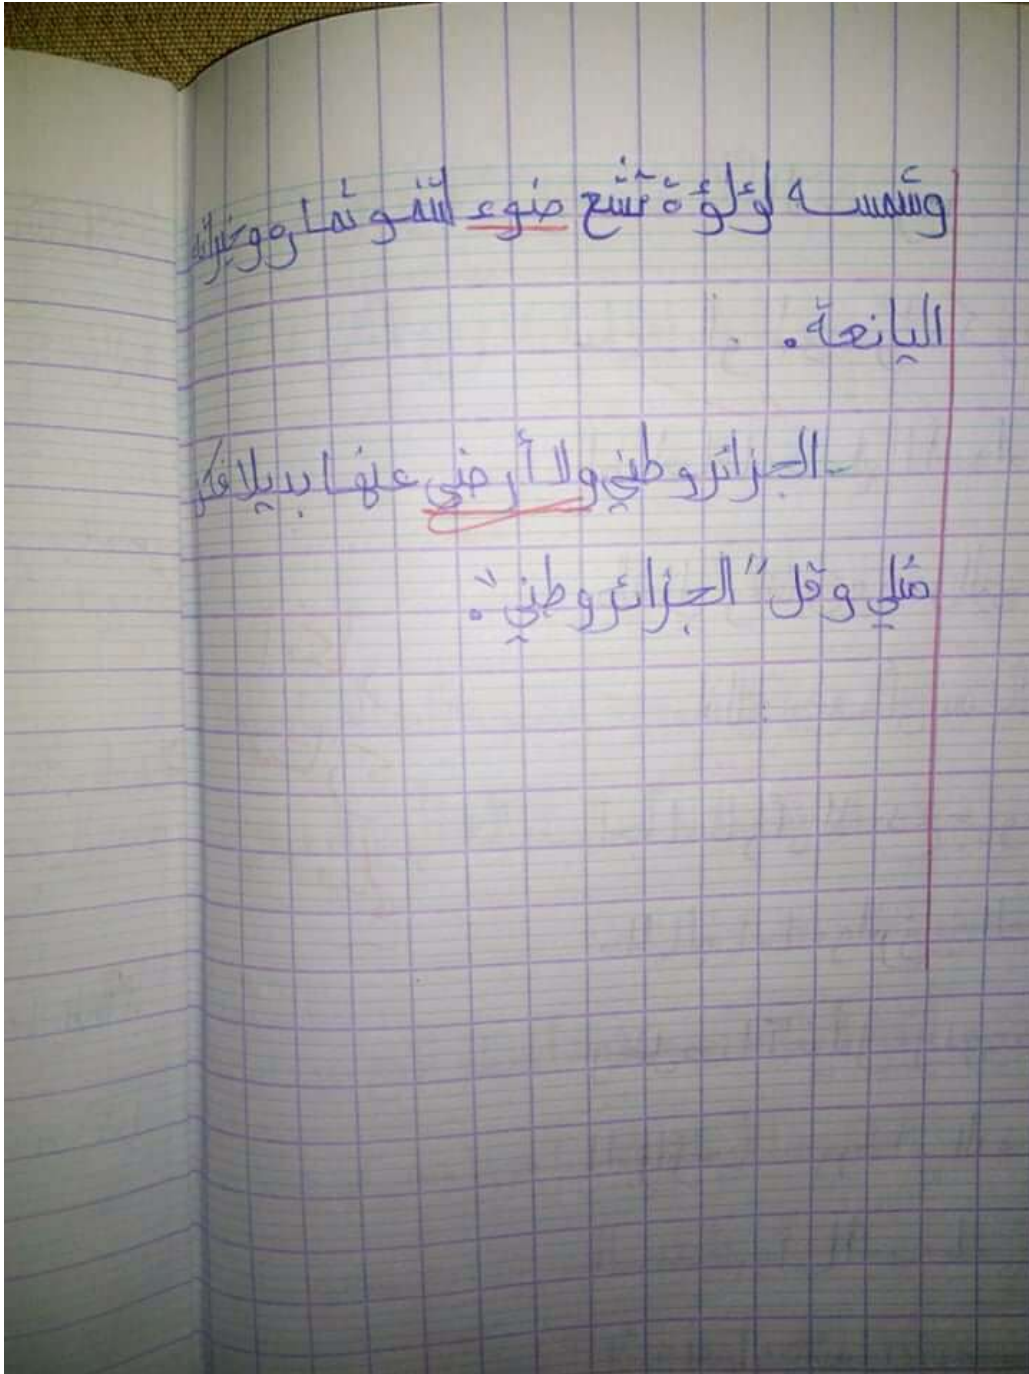 وشمسه لؤلؤة تشع ضوء لتنمو ثماره وخيراته
اليانعة.
- الجزائر وطني ولا أرضى عنها بديلا فكن
مثلي وقل "الجزائر وطني".